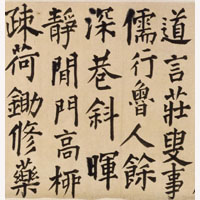 道言莊叟事
儒行魯人餘
深巷斜暉
靜閒門高桺
疎荷鋤修藥